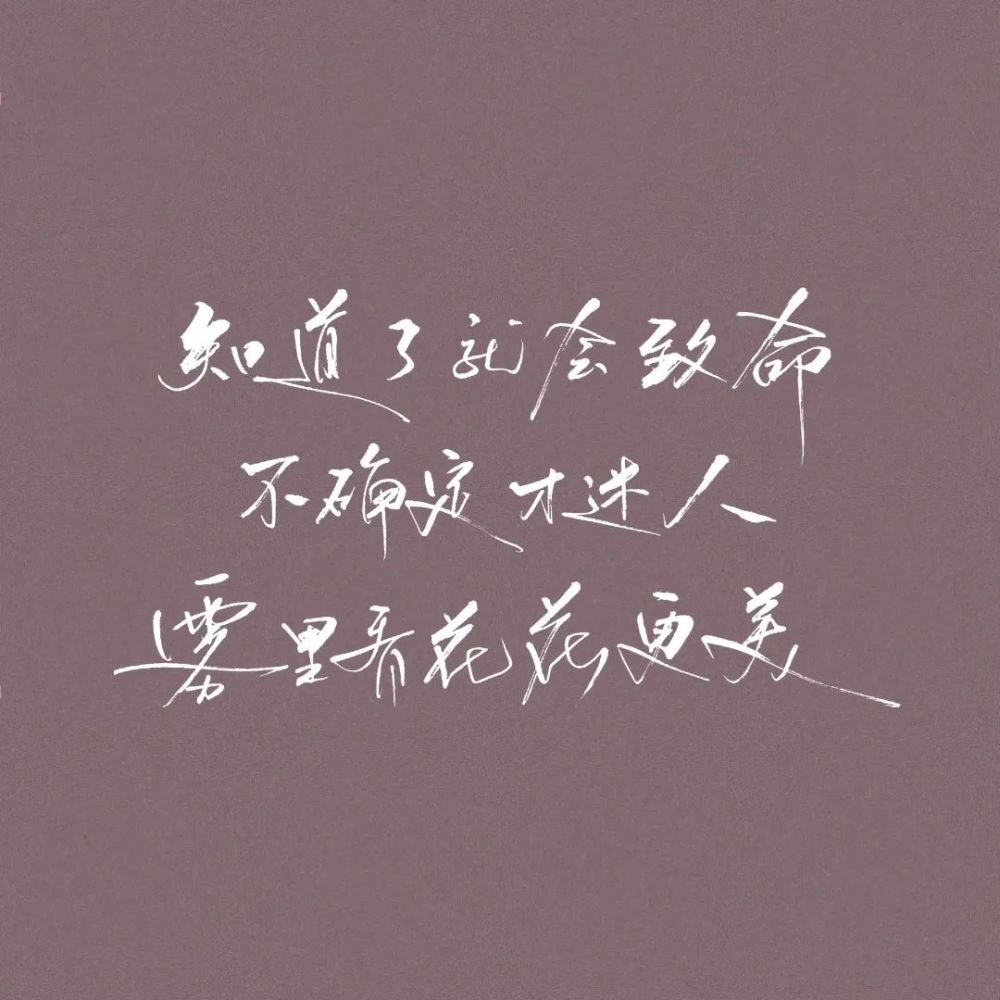 知道了就会致命
不确定才迷人
雾里看花花更美